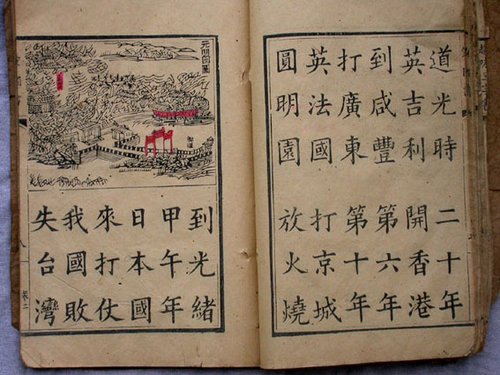 道光時 二十年
英吉利 開香港
到咸豐 第六年
打廣東 第十年
英法國 打京城
圓明園 放火燒
到光緒
甲午年
日本國
來打仗
我國敗
失台灣